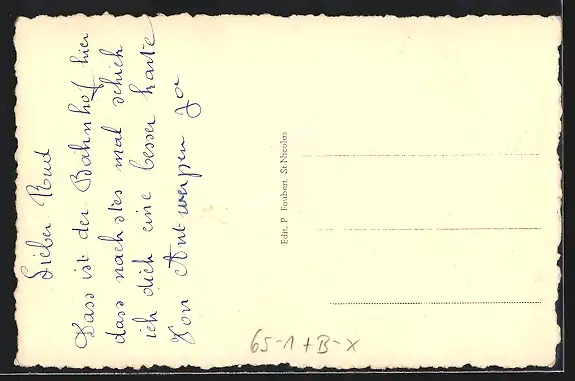 Lieber Rud
Dass ist der Bahnhof hier
dass nachstes mal schich
ich dich eine besser karte
Von Antwerpen Jo
Edit. P. Foubert, St-Nicolas
65-1+B-X